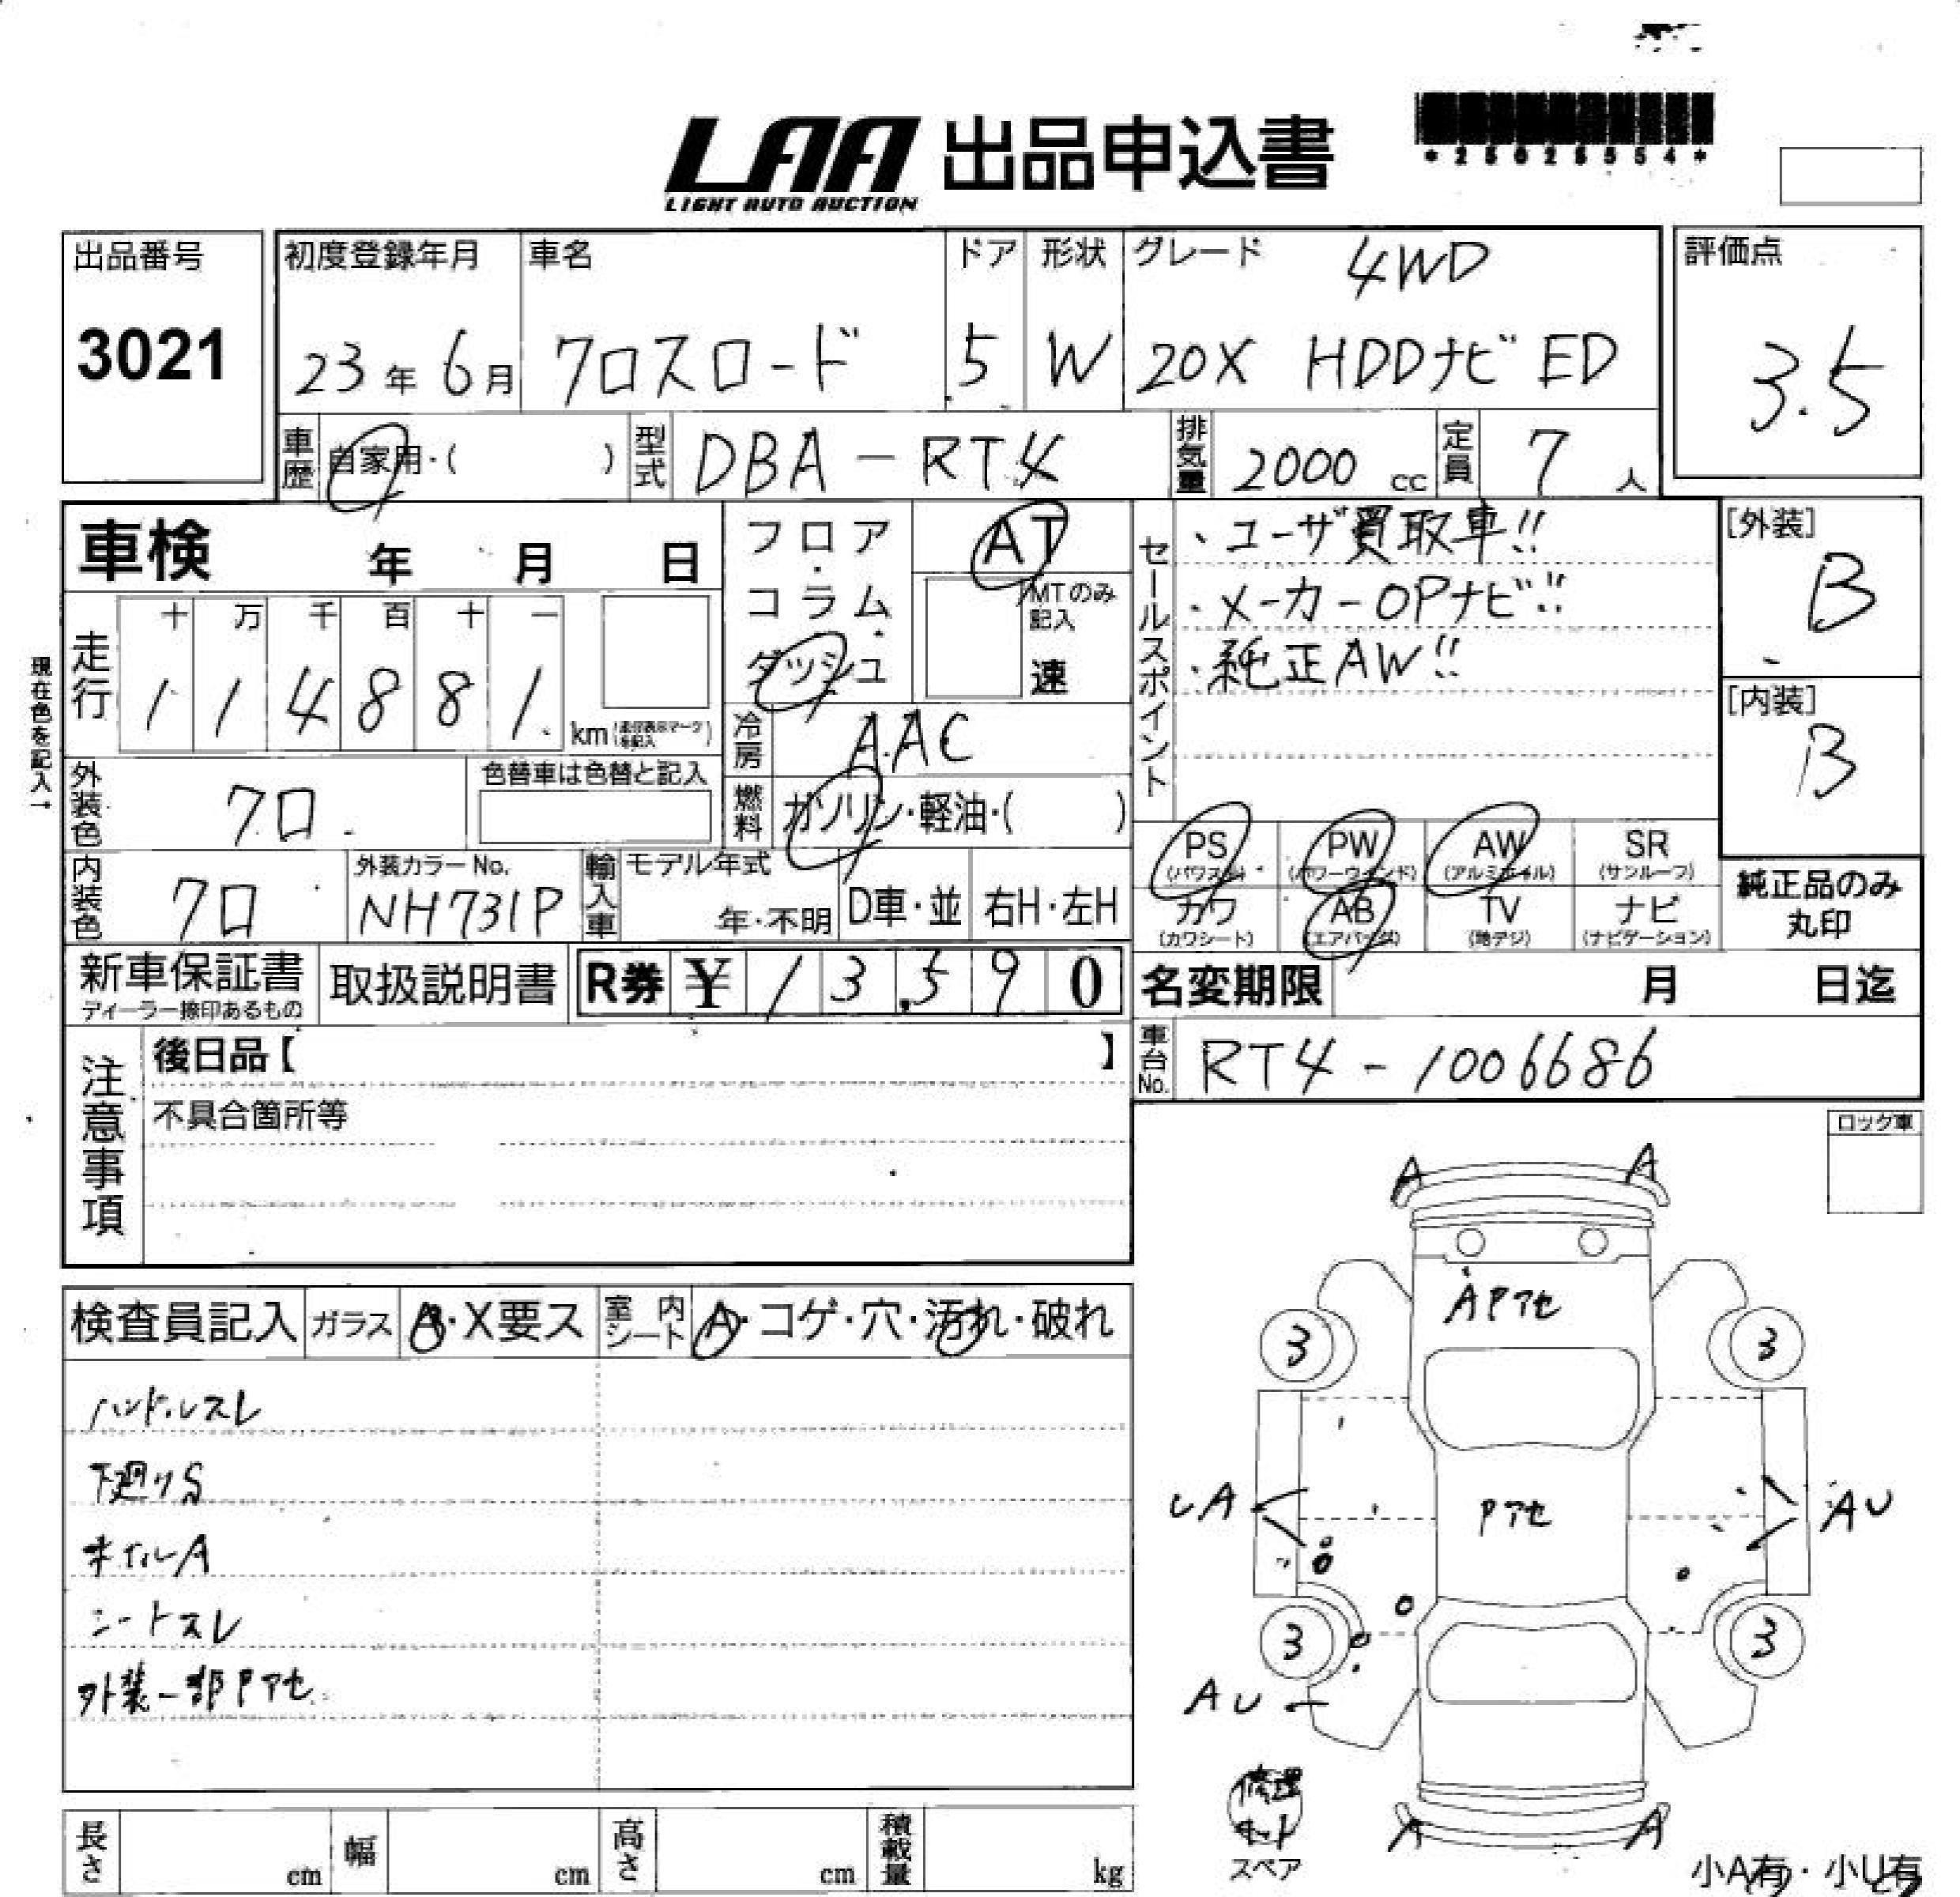 LAA 出品申込書
LIGHT AUTO AUCTION
*25028554*
出品番号
3021
初度登録年月
23年6月
車名
クロスロード
ドア
5
形状
W
グレード
4WD
20X HDDナビ ED
評価点
3.5
車歴
自家用・( )
型式
DBA-RT4
排気量
2000cc
定員
7人
車検 年 月 日
走行
十 万 千 百 十 一
1 1 4 8 8 1
km(走行表示マークを記入)
現在色を記入→
フロア・コラム・ダッシュ
AT
MTのみ記入
速
冷房
AAC
燃料
ガソリン・軽油・( )
外装色
クロ
色替車は色替と記入
内装色
クロ
外装カラーNo.
NH731P
輸入車
モデル年式
年・不明
D車・並
右H・左H
セールスポイント
・ユーザ買取車!!
・メーカーOPナビ!!
・純正AW!!
[外装]
B
[内装]
B
PS
(パワステ)
PW
(パワーウインド)
AW
(アルミホイル)
SR
(サンルーフ)
カワ
(カワシート)
AB
(エアバッグ)
TV
(地デジ)
ナビ
(ナビゲーション)
純正品のみ
丸印
新車保証書
ディーラー捺印あるもの
取扱説明書
R券 ¥ 13,590
名変期限 月 日迄
車台No.
RT4-1006686
注意事項
後日品【 】
不具合箇所等
ロック車
検査員記入
ガラス
A・X要ス
室内シート
A・コゲ・穴・汚れ・破れ
ハンドルスレ
下廻りS
ホイルA
シートスレ
外装一部Pアセ
A A
APアセ
3 3
Pアセ
UA
AU
3 3
AU
修理キット
スペア
A A
小A有・小U有
長さ cm
幅 cm
高さ cm
積載量 kg